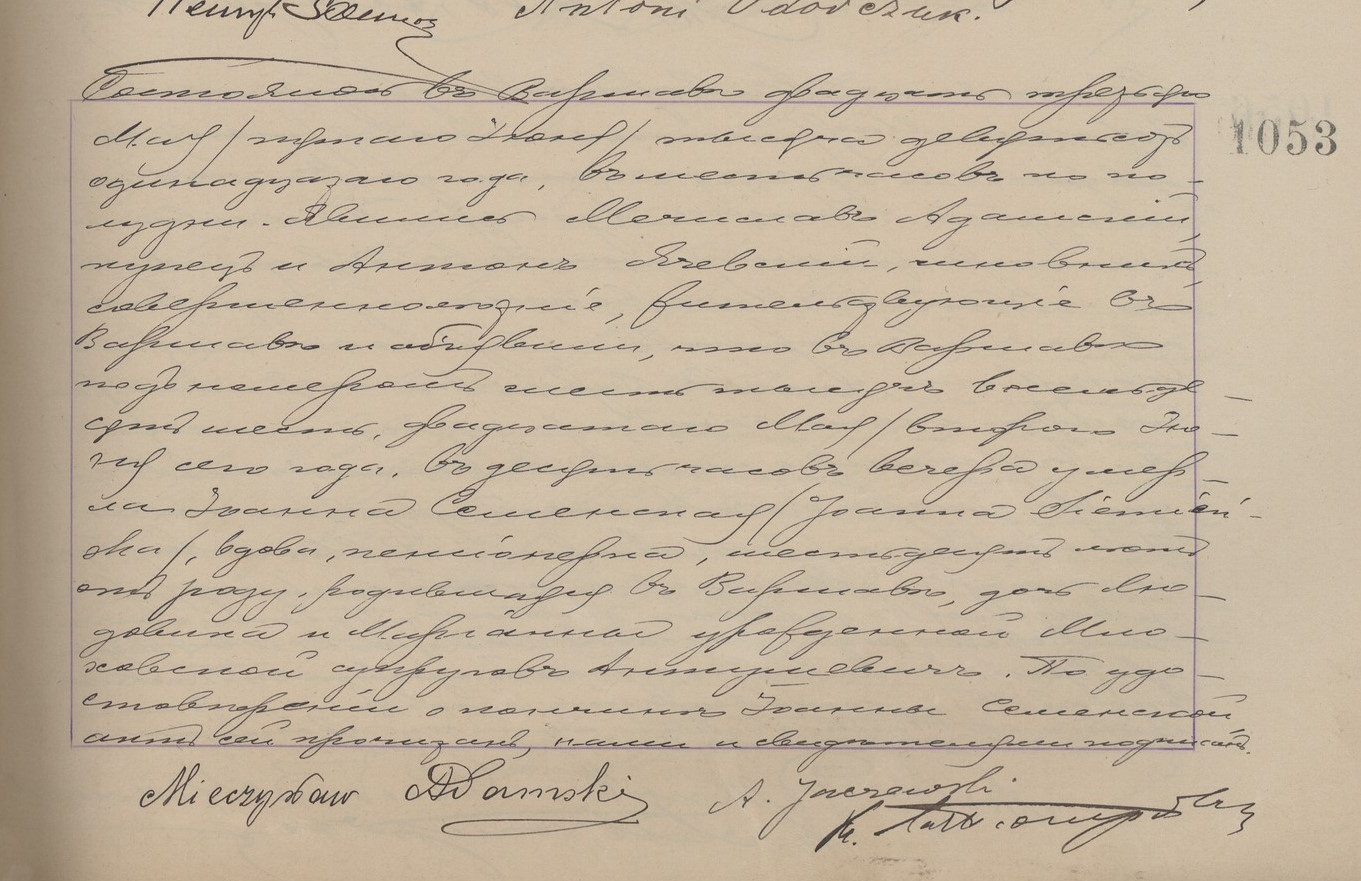 Antoni
Состоялось въ Варшавѣ двадцать третьяго
1053
Мая / пятаго Іюня / тысяча девятьсотъ
одинадцатаго года, въ шесть часовъ по по-
лудни. Явились Мечиславъ Адамскій,
купецъ и Антонъ Ячевскій, чиновникъ,
совершеннолѣтніе, жительствующіе въ
Варшавѣ и объявили, что въ Варшавѣ
подъ номеромъ шесть тысячъ восемьде-
сятъ шесть, двадцатаго Мая / второго Ію-
ня сего года, въ десять часовъ вечера умер-
ла Іоанна Семенская / Joanna Siemień-
ska /, вдова, пенсіонерка, шестьдесятъ лѣтъ
отъ роду, родившаяся въ Варшавѣ, дочь Лю-
довика и Маріанны урожденной
супруговъ Антушевичъ. По удо-
стовѣреніи о кончинѣ Іоанны Семенской
актъ сей прочитанъ, нами и свидѣтелями подписанъ.
Mieczysław Adamski A. Jaczewski